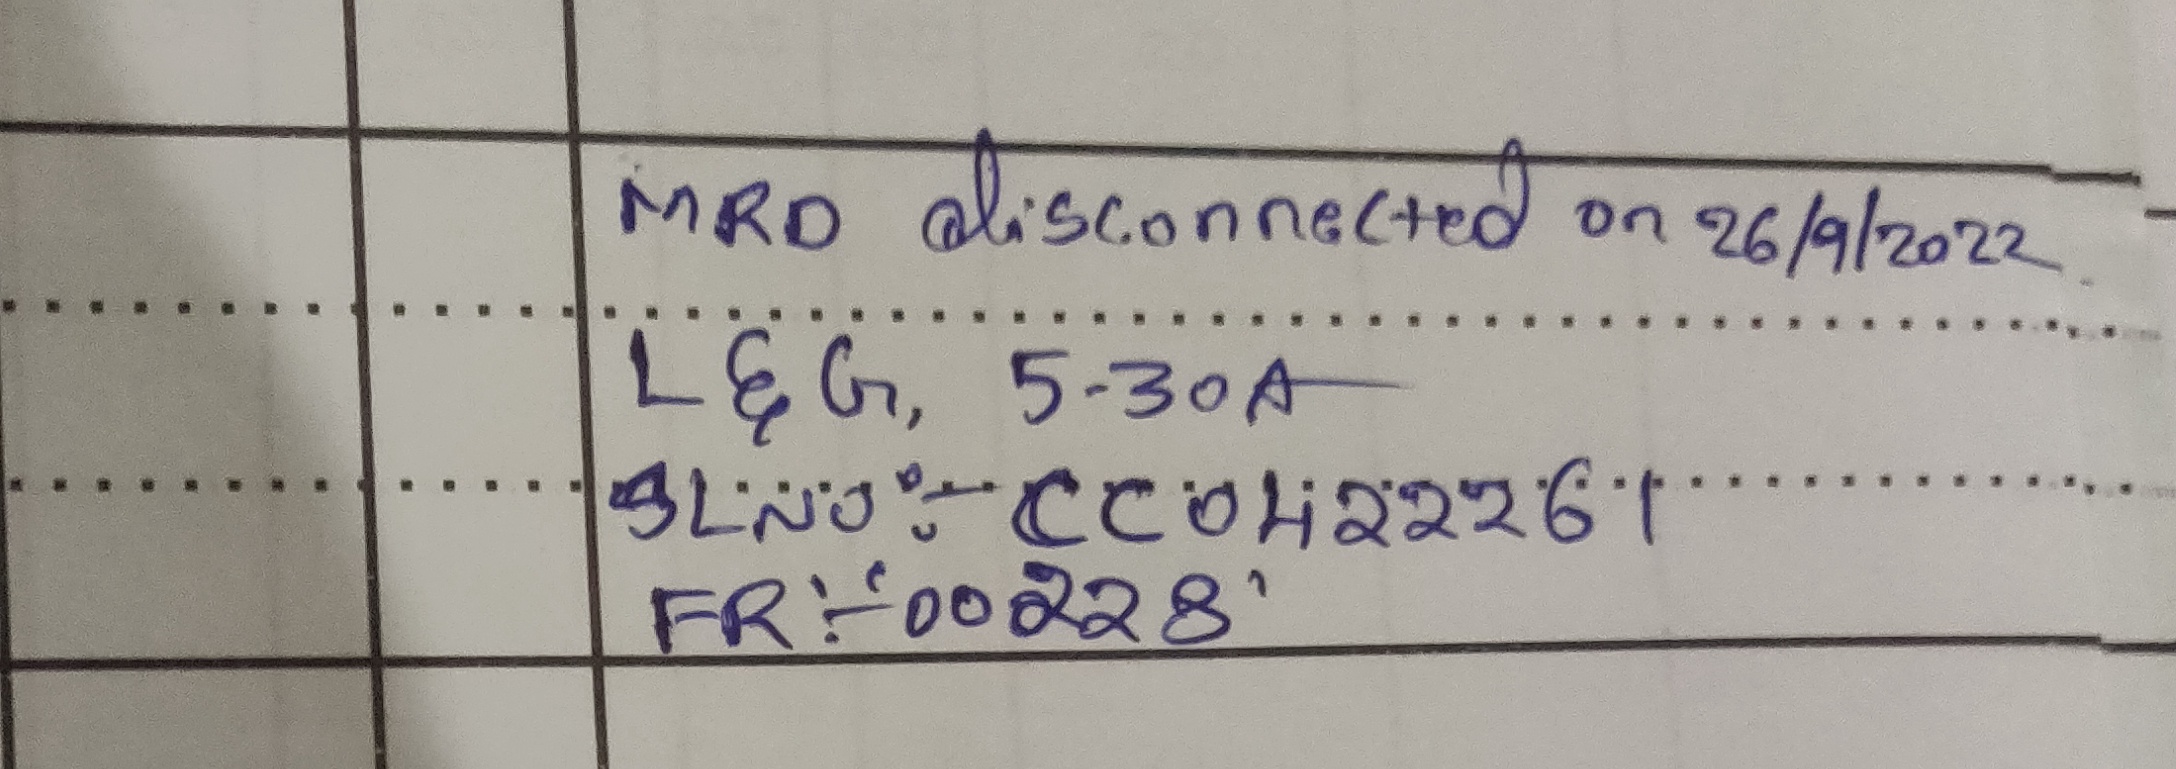 MRD disconnected on 26/9/2022
L & G, 5-30A
SLNO:- CC0422261
FR:- '00228'